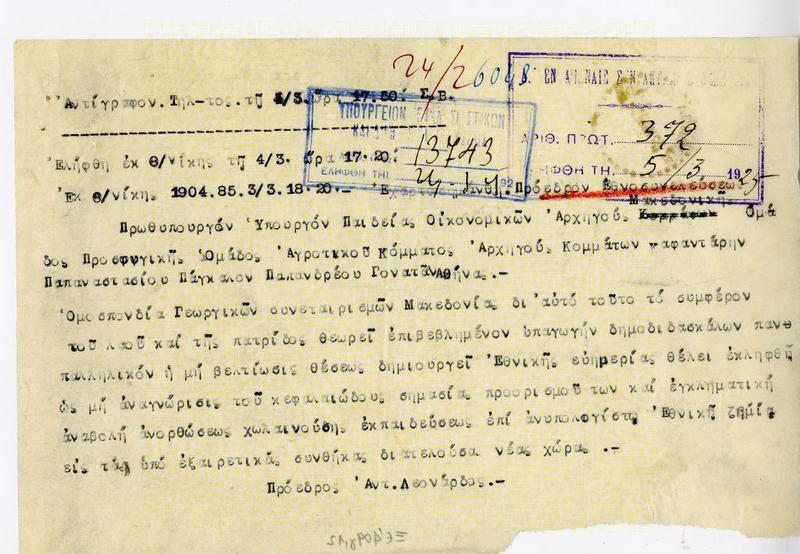 24/2 6048
Ἀντίγραφον. Τηλ-τος. τῇ 4/3. ὥρᾳ 17.50. Σ.Β.
ΥΠΟΥΡΓΕΙΟΝ
13743
ΕΛΗΦΘΗ ΤΗ
ΕΝ ΑΘΗΝΑΙΣ
ΑΡΙΘ. ΠΡΩΤ. 372
ΕΛΗΦΘΗ ΤΗ. 5/3 1925
Ἐλήφθη ἐκ Θ/νίκης τῇ 4/3. ὥρα 17.20.
Ἐκ Θ/νίκης 1904.85.3/3.18.20.- Πρόεδρον Ἐθνοσυνελεύσεως
Μακεδονικῆς
Πρωθυπουργόν Ὑπουργόν Παιδείας Οἰκονομικῶν Ἀρχηγούς Ὁμά
δος Προσφυγικῆς Ὁμάδος Ἀγροτικοῦ Κόμματος Ἀρχηγούς Κομμάτων Καφαντάρην
Παπαναστασίου Πάγκαλον Παπανδρέου Γονατᾶν Ἀθήνας.-
Ὁμοσπονδία Γεωργικῶν συνεταιρισμῶν Μακεδονίας δι' αὐτό τοῦτο τό συμφέρον
τοῦ λαοῦ καί τῆς πατρίδος θεωρεῖ ἐπιβεβλημένον ὑπαγωγήν δημοδιδασκάλων παν
παλληλικόν ἡ μή βελτίωσις θέσεως δημιουργεῖ Ἐθνικῆς εὐημερίας θέλει ἐκληφθῇ
ὡς μή ἀναγνώρισις τοῦ κεφαλαιώδους σημασίας προορισμοῦ των καί ἐγκληματική
ἀναβολή ἀνορθώσεως χωλαινούσης ἐκπαιδεύσεως ἐπί ἀνυπολογίστῳ Ἐθνικῇ ζημίᾳ
εἰς τάς ὑπό ἐξαιρετικάς συνθήκας διατελούσα νέας χώρας .-
Πρόεδρος Ἀντ. Λεονάρδος.-